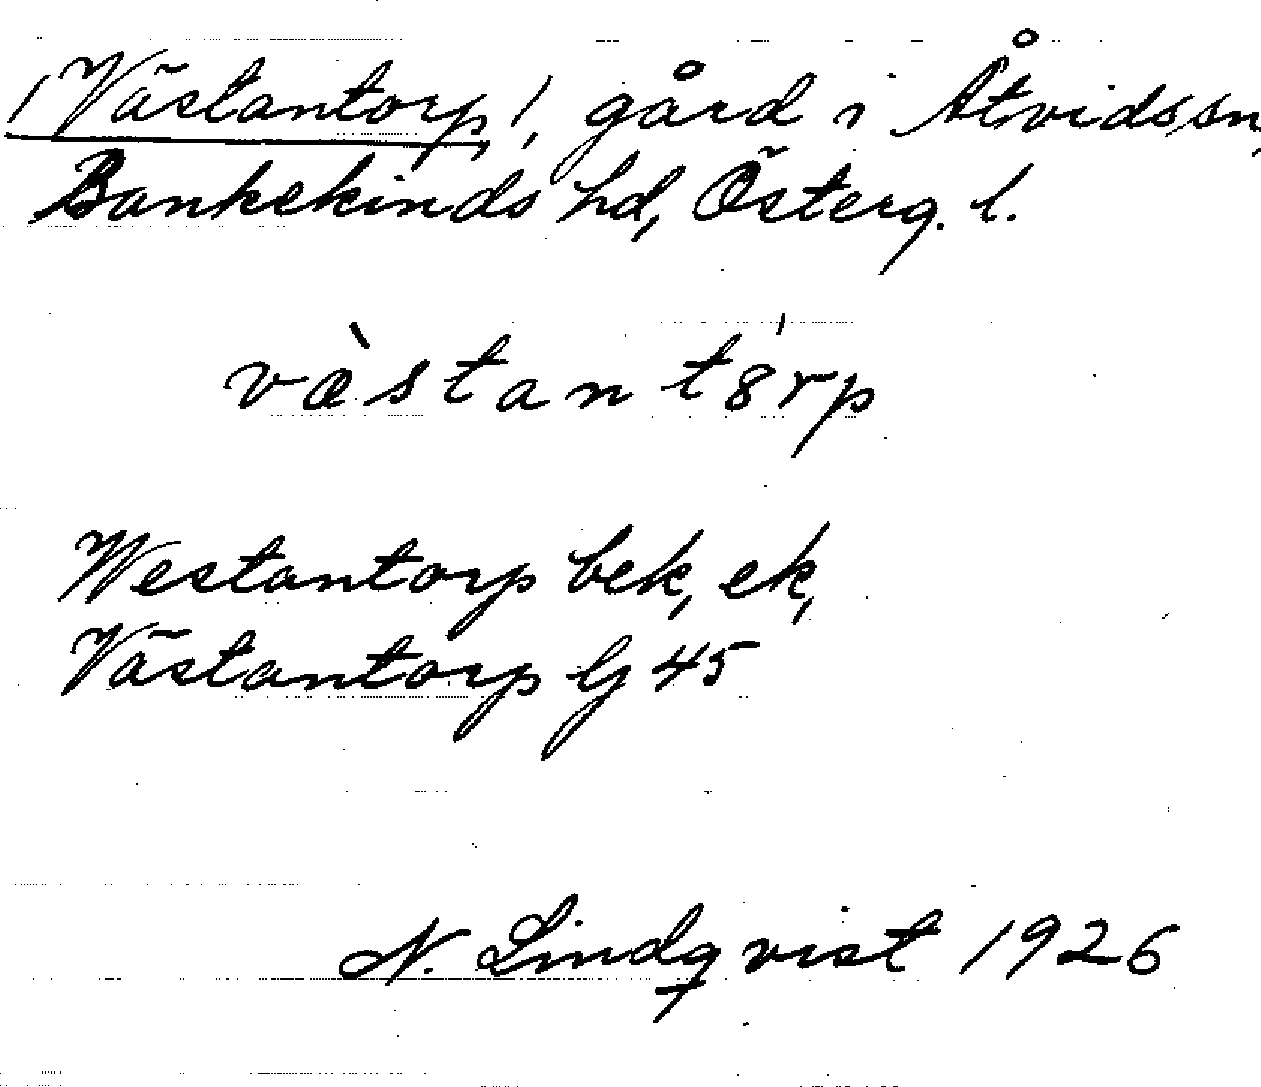 /Västantorp/, gård i Åtvids sn,
Bankekinds hd, Österg. l.
væ̀stantȣ́rp
Westantorp bek, ek,
Västantorp Gj 45
N. Lindqvist 1926